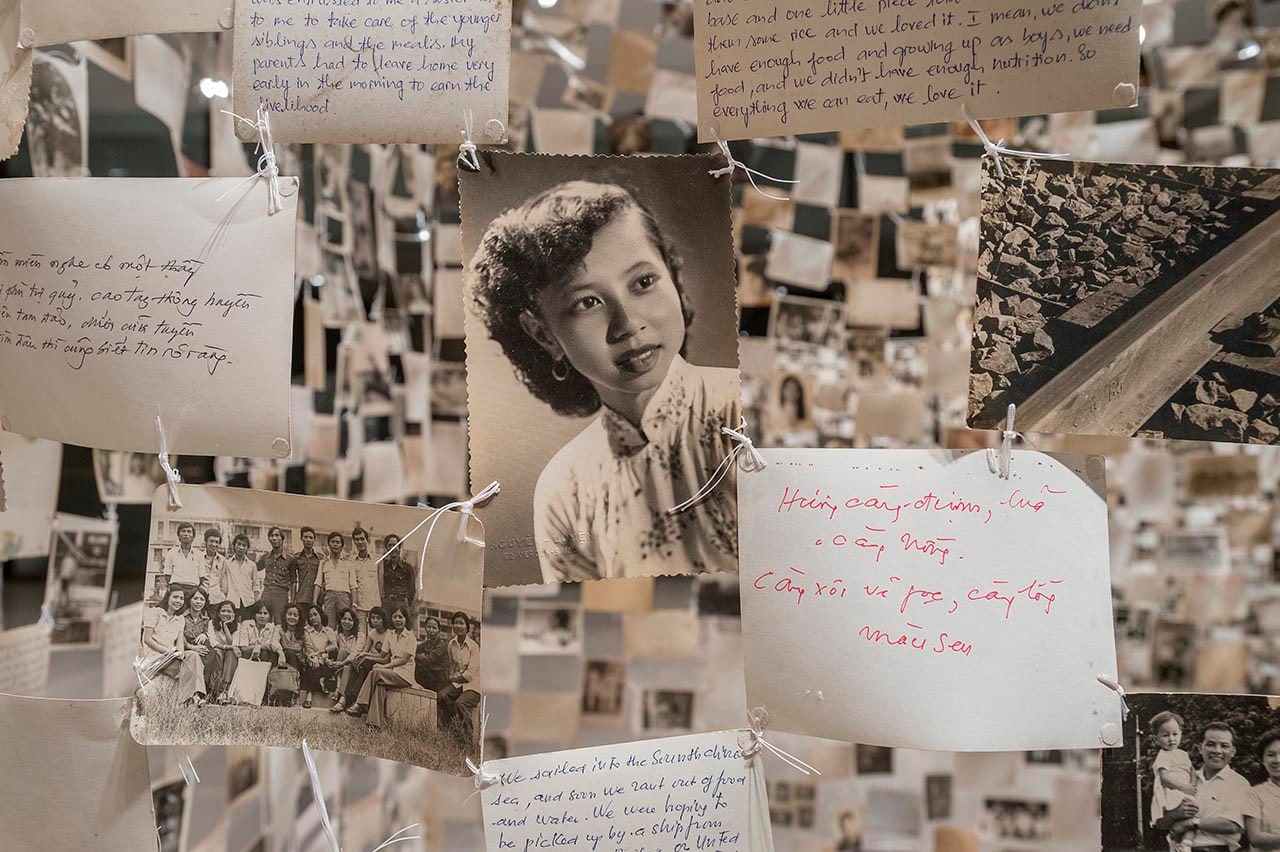 to me to take care of the younger
siblings and the meals. My
parents had to leave home very
early in the morning to earn the
livelihood.
base and one little piece
them some rice and we loved it. I mean, we didn't
have enough food and growing up as boys, we need
food, and we didn't have enough nutrition. So
everything we can eat, we love it.
miền nghe có một thầy
trị quỷ. cao tay thông huyền
tam đảo, chín cửu tuyền
đâu thì cũng biết tin rõ ràng.
NGUYỄN
Hương càng đượm, lửa
càng nồng.
Càng xôi vẻ ngọc, càng lồng
màu sen
We sailed into the South china
sea, and soon we rant out of food
and water. We were hoping to
be picked up by a ship from
or United